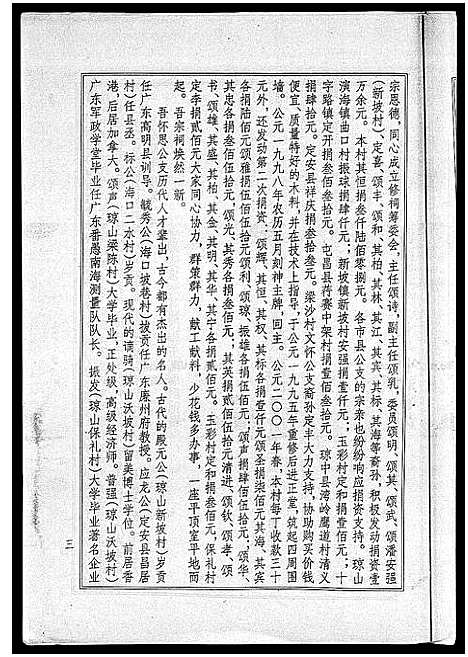 宗恩德，同心成立修祠筹委会，主任颂诗，副主任颂乳，委员颂明、颂其、颂武、颂潘安强
(新坡村)、定喜、颂丰、颂和、其柏、其林、其江、其宾、其标、其海等裔孙，积极发动捐资壹
万余元。本村其恒捐叁仟陆佰零捌元。各市县公支的宗亲也纷纷响应捐资支持。琼山
滨海镇曲口村振球捐肆仟元；新坡镇新坡村安强捐壹仟元；玉彩村定和捐壹佰元；十
字路镇定开捐叁佰叁拾元。屯昌县荷赛中架村捐壹佰叁拾元。琼中县湾岭鹰道村清义
捐肆拾元。定安县祥庆捐叁拾叁元。梁沙村文怀公支裔孙定丰大力支持，协助购买价钱
便宜、质量特好的木料，并在技术上指导，于公元一九九五年重修后进正堂，筑起四周围
墙。公元一九九八年农历五月刻神主牌，回主。公元二〇〇一年春，本村每丁收款三十
元外，还发动第二次捐资、颂辉、其恒、其权、其标各捐壹仟元颂圣捐柒佰元其海、其宾
各捐陆佰元颂雅捐伍佰伍拾元颂利、颂琼、振雄各捐伍佰元、颂声捐肆佰伍拾元、颂华、
其忠各捐叁佰伍拾元、颂光、其秀各捐叁佰元；其英捐贰佰伍拾元清进、颂钦、颂孝、颂
书、颂雄、其盛、其柏、其金、其明、其华、其宁各捐贰佰元。玉彩村定和捐叁佰元，保礼村
定李捐贰佰元大家同心协力，群策群力，献工献料，少花钱多办事，一座平顶室平地而
起。吾宗祠焕然一新。
吾怀恩公支历代人才辈出，古今都有杰出的名人。古代的殿元公(琼山新坡村)岁贡
任广东高明县训导。毓秀公(海口坡巷村)拔贡任广东廉州府教授。应龙公(定安县昌居
村)任县丞。标公(海口二水村)岁贡。现代的谟骑(琼山沃坡村)留美博士学位。前居香
港，后居加拿大。颂声(琼山梁陈村)大学毕业，正处级，高级经济师。普强(琼山沃坡村)
广东军政学堂毕业任广东番愚南海测量队队长。振发(琼山保礼村)大学毕业著名企业
三